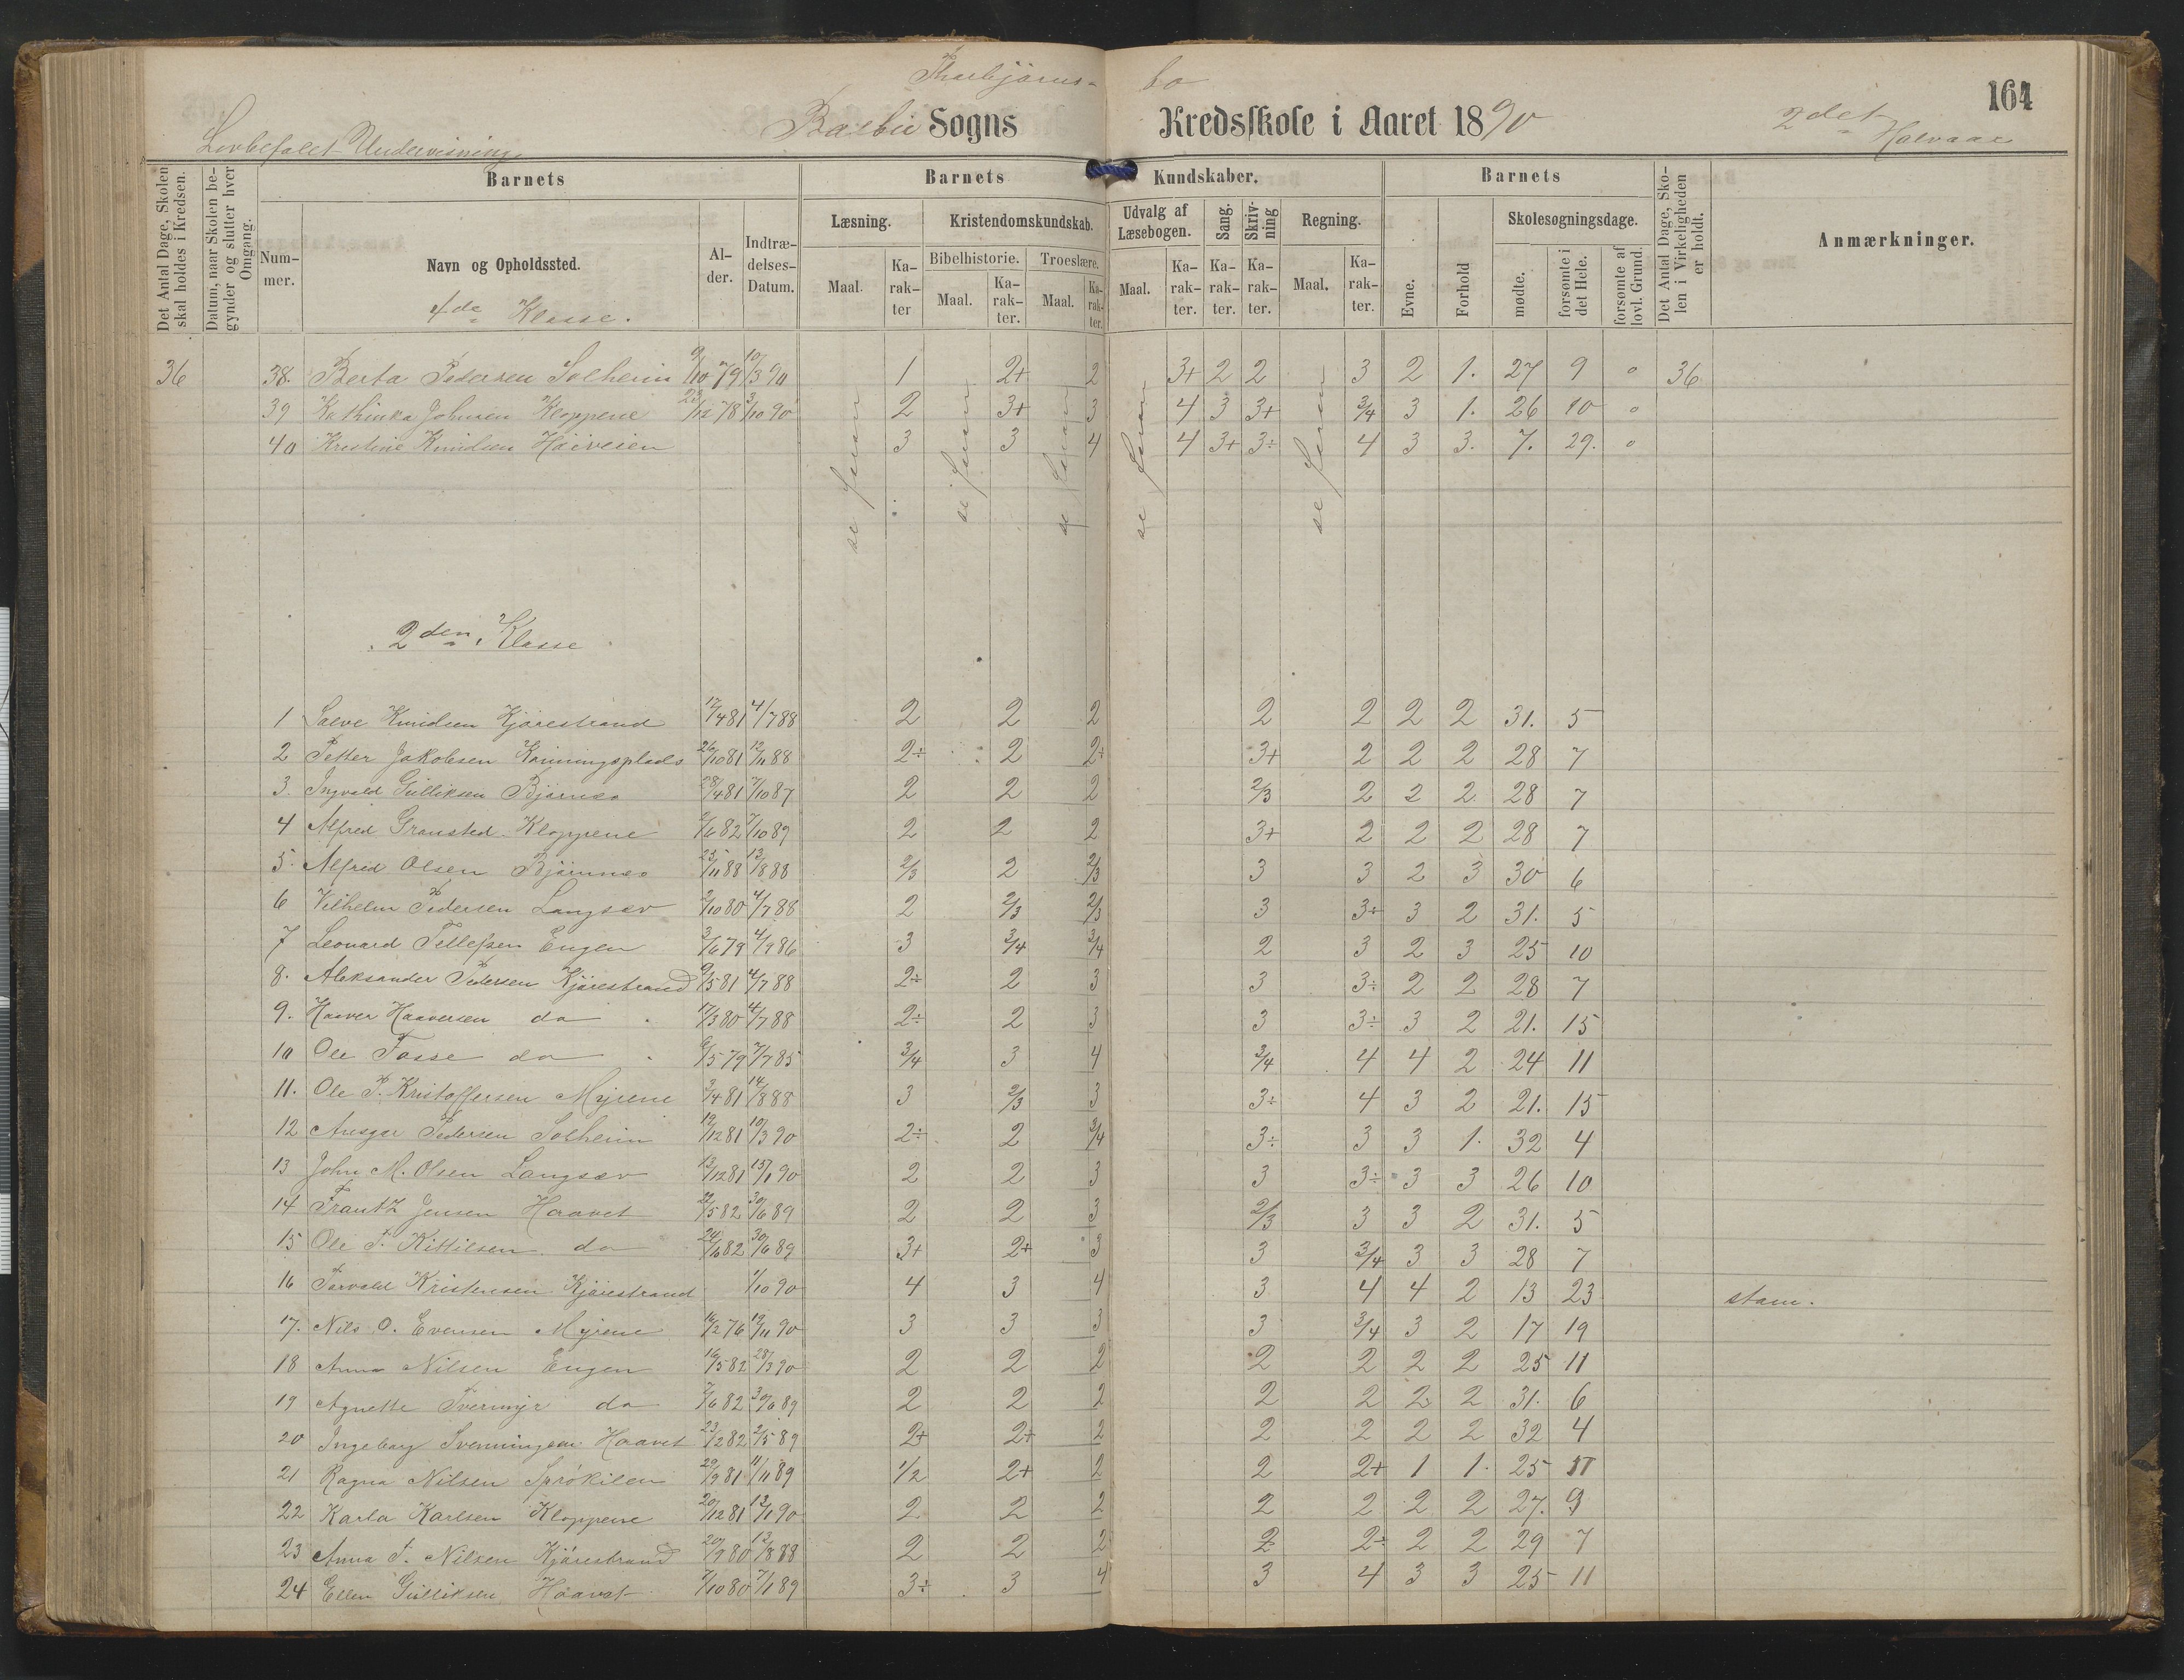 164
Thorbjörns- bo
Barbu Sogns Kredsskole i Aaret 1890 2det Halvaar
Lovbefalet Undervisning
Det Antal Dage, Skolen skal holdes i Kredsen.
Datum, naar Skolen begynder og slutter hver Omgang.
Barnets
Barnets Kundskaber.
Barnets
Det Antal Dage, Skolen i Virkeligheden er holdt.
Anmærkninger.
Nummer.
Navn og Opholdssted.
Alder.
Indtrædelses-Datum.
Læsning.
Kristendomskundskab.
Bibelhistorie.
Troeslære.
Udvalg af Læsebogen.
Sang.
Skrivning
Regning.
Evne.
Forhold
Skolesøgningsdage.
Maal. Karakter Maal. Karakter. Maal. Karakter. Maal. Karakter. Karakter. Karakter. Maal. Karakter.
mødte.
forsømte i det Hele.
forsømte af lovl. Grund.
4de Klasse.
36 38. Berta Pedersen Solheim 9/10 79 10/3 90 1 2+ 2 3+ 2 2 3 2 1. 27 9 0 36
39 Kathinka Johnsen Kloppene 23/12 78 3/10 90 2 3+ 3 4 3 3+ 3/4 3 1. 26 10 0
40 Kristine Knudsen Höiveien 3 3 4 4 3+ 3÷ 4 3 3. 7. 29. 0
2den Klasse
1 Salve Knudsen Kjärestrand 17/4 81 4/7 88 2 2 2 2 2 2 2 31. 5
2 Petter Jakobsen 26/10 81 12/11 88 2÷ 2 2÷ 3+ 2 2 2 28 7
3. Ingvald Gulliksen Bjørnes 28/4 81 7/10 87 2 2 2 2/3 2 2 2. 28 7
4 Alfred Gransted Kloppene 2/6 82 7/10 89 2 2 2 3+ 2 2 2 28 7
5. Alfred Olsen Bjørnnes 25/11 88 13/8 88 2/3 2 2/3 3 3 2 3 30 6
6 Vilhelm Pedersen Langsæv 2/10 80 4/7 88 2 2/3 2/3 3 3÷ 3 2 31. 5
7 Leonard Tellefsen Engen 3/6 79 4/9 86 3 3/4 3/4 2 3 2 3 25 10
8. Aleksander Pedersen Kjärestrand 9/5 81 4/7 88 2÷ 2 3 3 3÷ 2 2 28 7
9. Haaver Haaversen do 17/3 80 4/7 88 2÷ 2 3 3 3÷ 3 2 21. 15
10 Ole Fosse do 6/5 79 7/7 85 3/4 3 4 3/4 4 4 2 24 11
11. Ole P. Kristoffersen Myrene 3/4 81 14/8 88 3 2/3 3 3÷ 4 3 2 21. 15
12 Ansgar Pedersen Solheim 19/12 81 10/3 90 2÷ 2 3/4 3÷ 3 3 1. 32 4
13 John M. Olsen Langsæv 13/12 81 15/1 90 2 2 3 3 3÷ 3 3 26 10
14 Frantz Jensen Haavet 22/5 82 30/6 89 2 2 3 2/3 3 3 2 31. 5
15 Ole T. Kittilsen do 24/6 82 30/6 89 3+ 2+ 3 3 3/4 3 3 28 7
16 Torvald Kristensen Kjärestrand 1/10 90 4 3 4 3 4 4 2 13 23 stam.
17. Nils O. Evensen Myrene 16/2 76 19/11 90 3 3 3 3 3/4 3 2 17 19
18 Anna Nilsen Engen 16/5 82 28/3 90 2 2 2 2 2 2 2 25 11
19 Agnette Svermyr do 7/6 82 30/6 89 2 2 2 2 2 2 2 31. 6
20 Ingeborg Svenningsen Haavet 23/2 82 2/5 89 2+ 2+ 2 2 2 2 2 32 4
21 Ragna Nilsen Sprökilen 29/9 81 11/11 89 1/2 2+ 2 2 2+ 1 1. 25 11
22 Karla Karlsen Kloppene 20/12 81 13/1 90 2 2 2 2 2 2 2 27. 9
23 Anna T. Nilsen Kjärestrand 20/9 80 13/8 88 2 2 2 2 2÷ 2 2 29 7
24 Ellen Gulliksen Haavet 7/10 80 7/1 89 3÷ 3 4 3 4 3 3 25 11
se foran
se foran
se foran
se foran
se foran